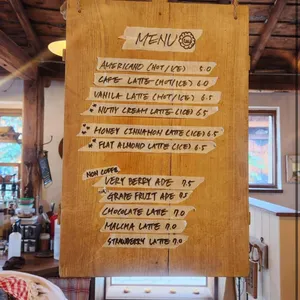 MENU
AMERICANO (HOT/ICE) 5.0
CAFE LATTE (HOT/ICE) 6.0
VANILA LATTE (HOT/ICE) 6.5
NUTTY CREAM LATTE (ICE) 6.5
HONEY CINNAMON LATTE (ICE) 6.5
FLAT ALMOND LATTE (ICE) 6.5
NON COFFEE
VERY BERRY ADE 7.5
GRAPE FRUIT ADE 7.5
CHOCOLATE LATTE 7.0
MALCHA LATTE 7.0
STRAWBERRY LATTE 7.0